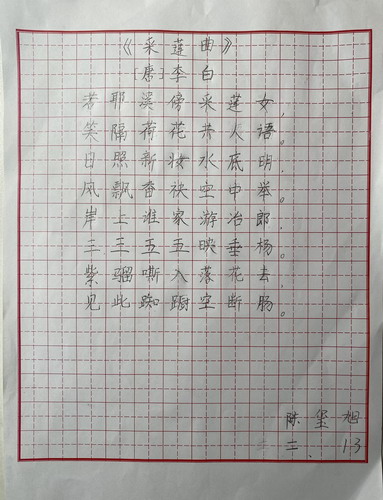 《采莲曲》
[唐]李白
若耶溪傍采莲女,
笑隔荷花共人语。
日照新妆水底明,
风飘香袂空中举。
岸上谁家游冶郎,
三三五五映垂杨。
紫骝嘶入落花去,
见此踟蹰空断肠。
陈玺旭
二、13